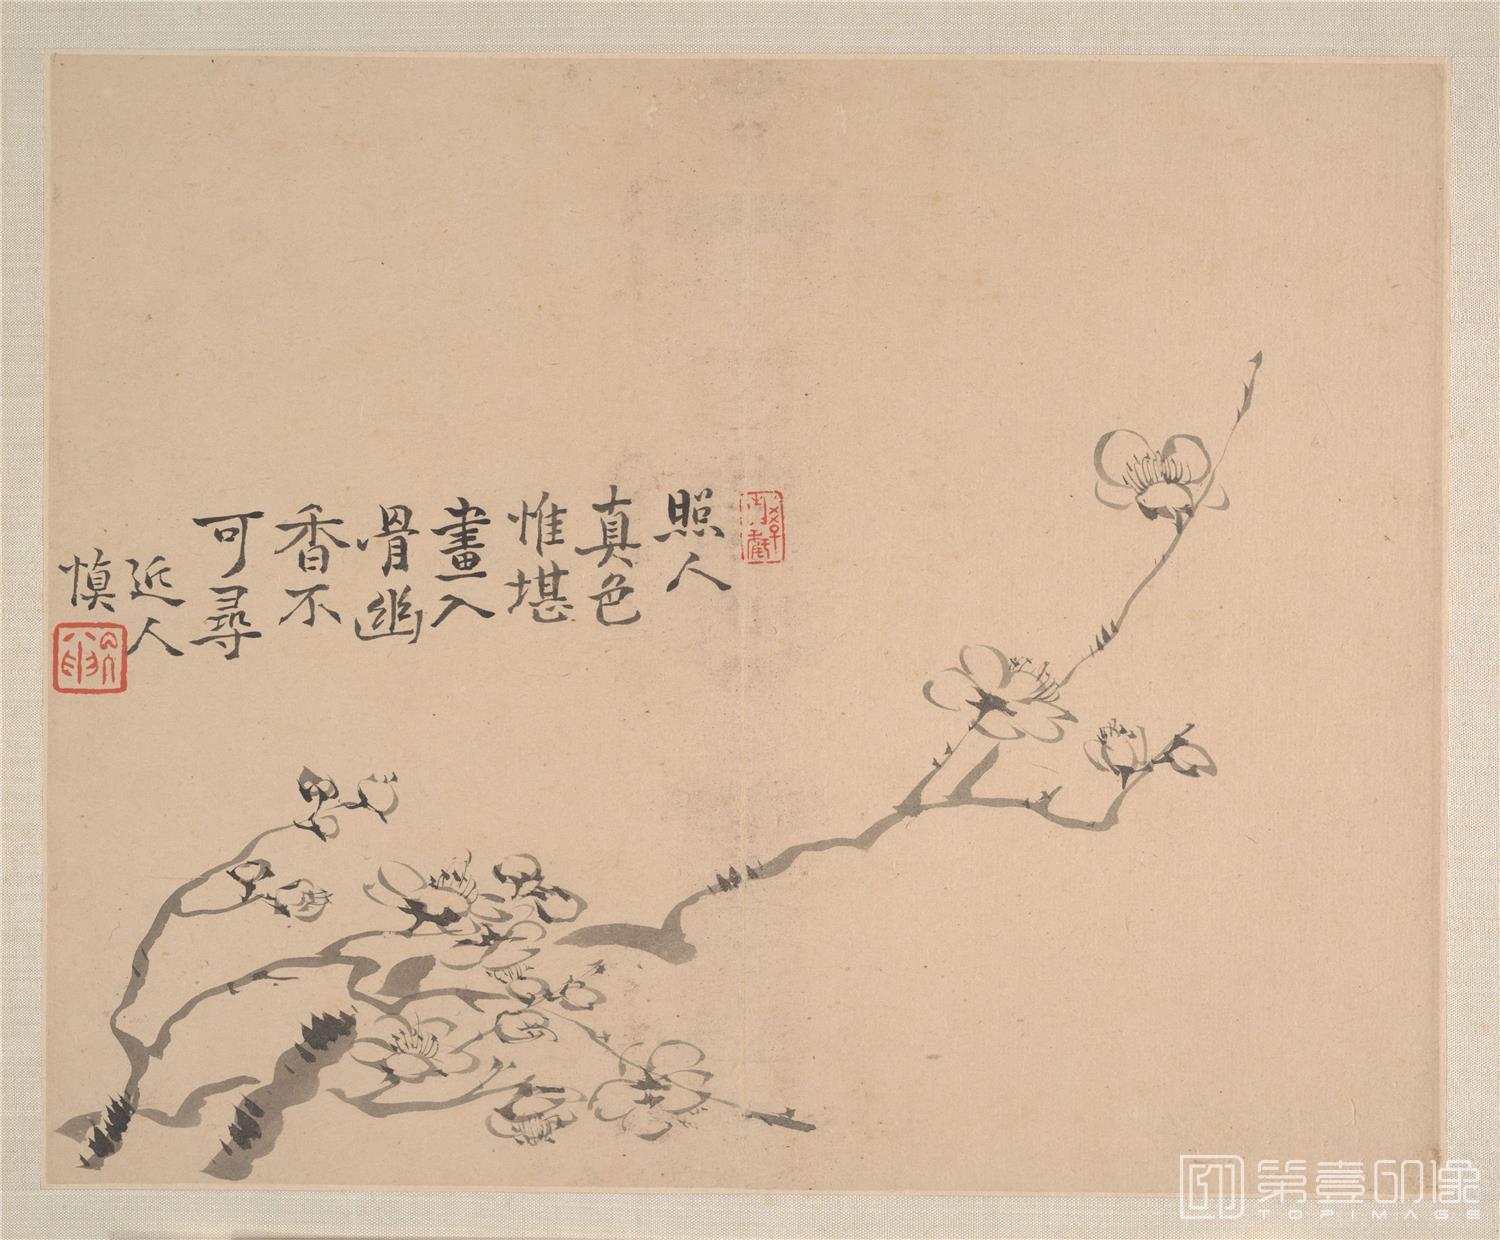 照人
真色
惟堪
畫入
骨幽
香不
可尋
近人
慎
第壹印像
TOPIMAGE